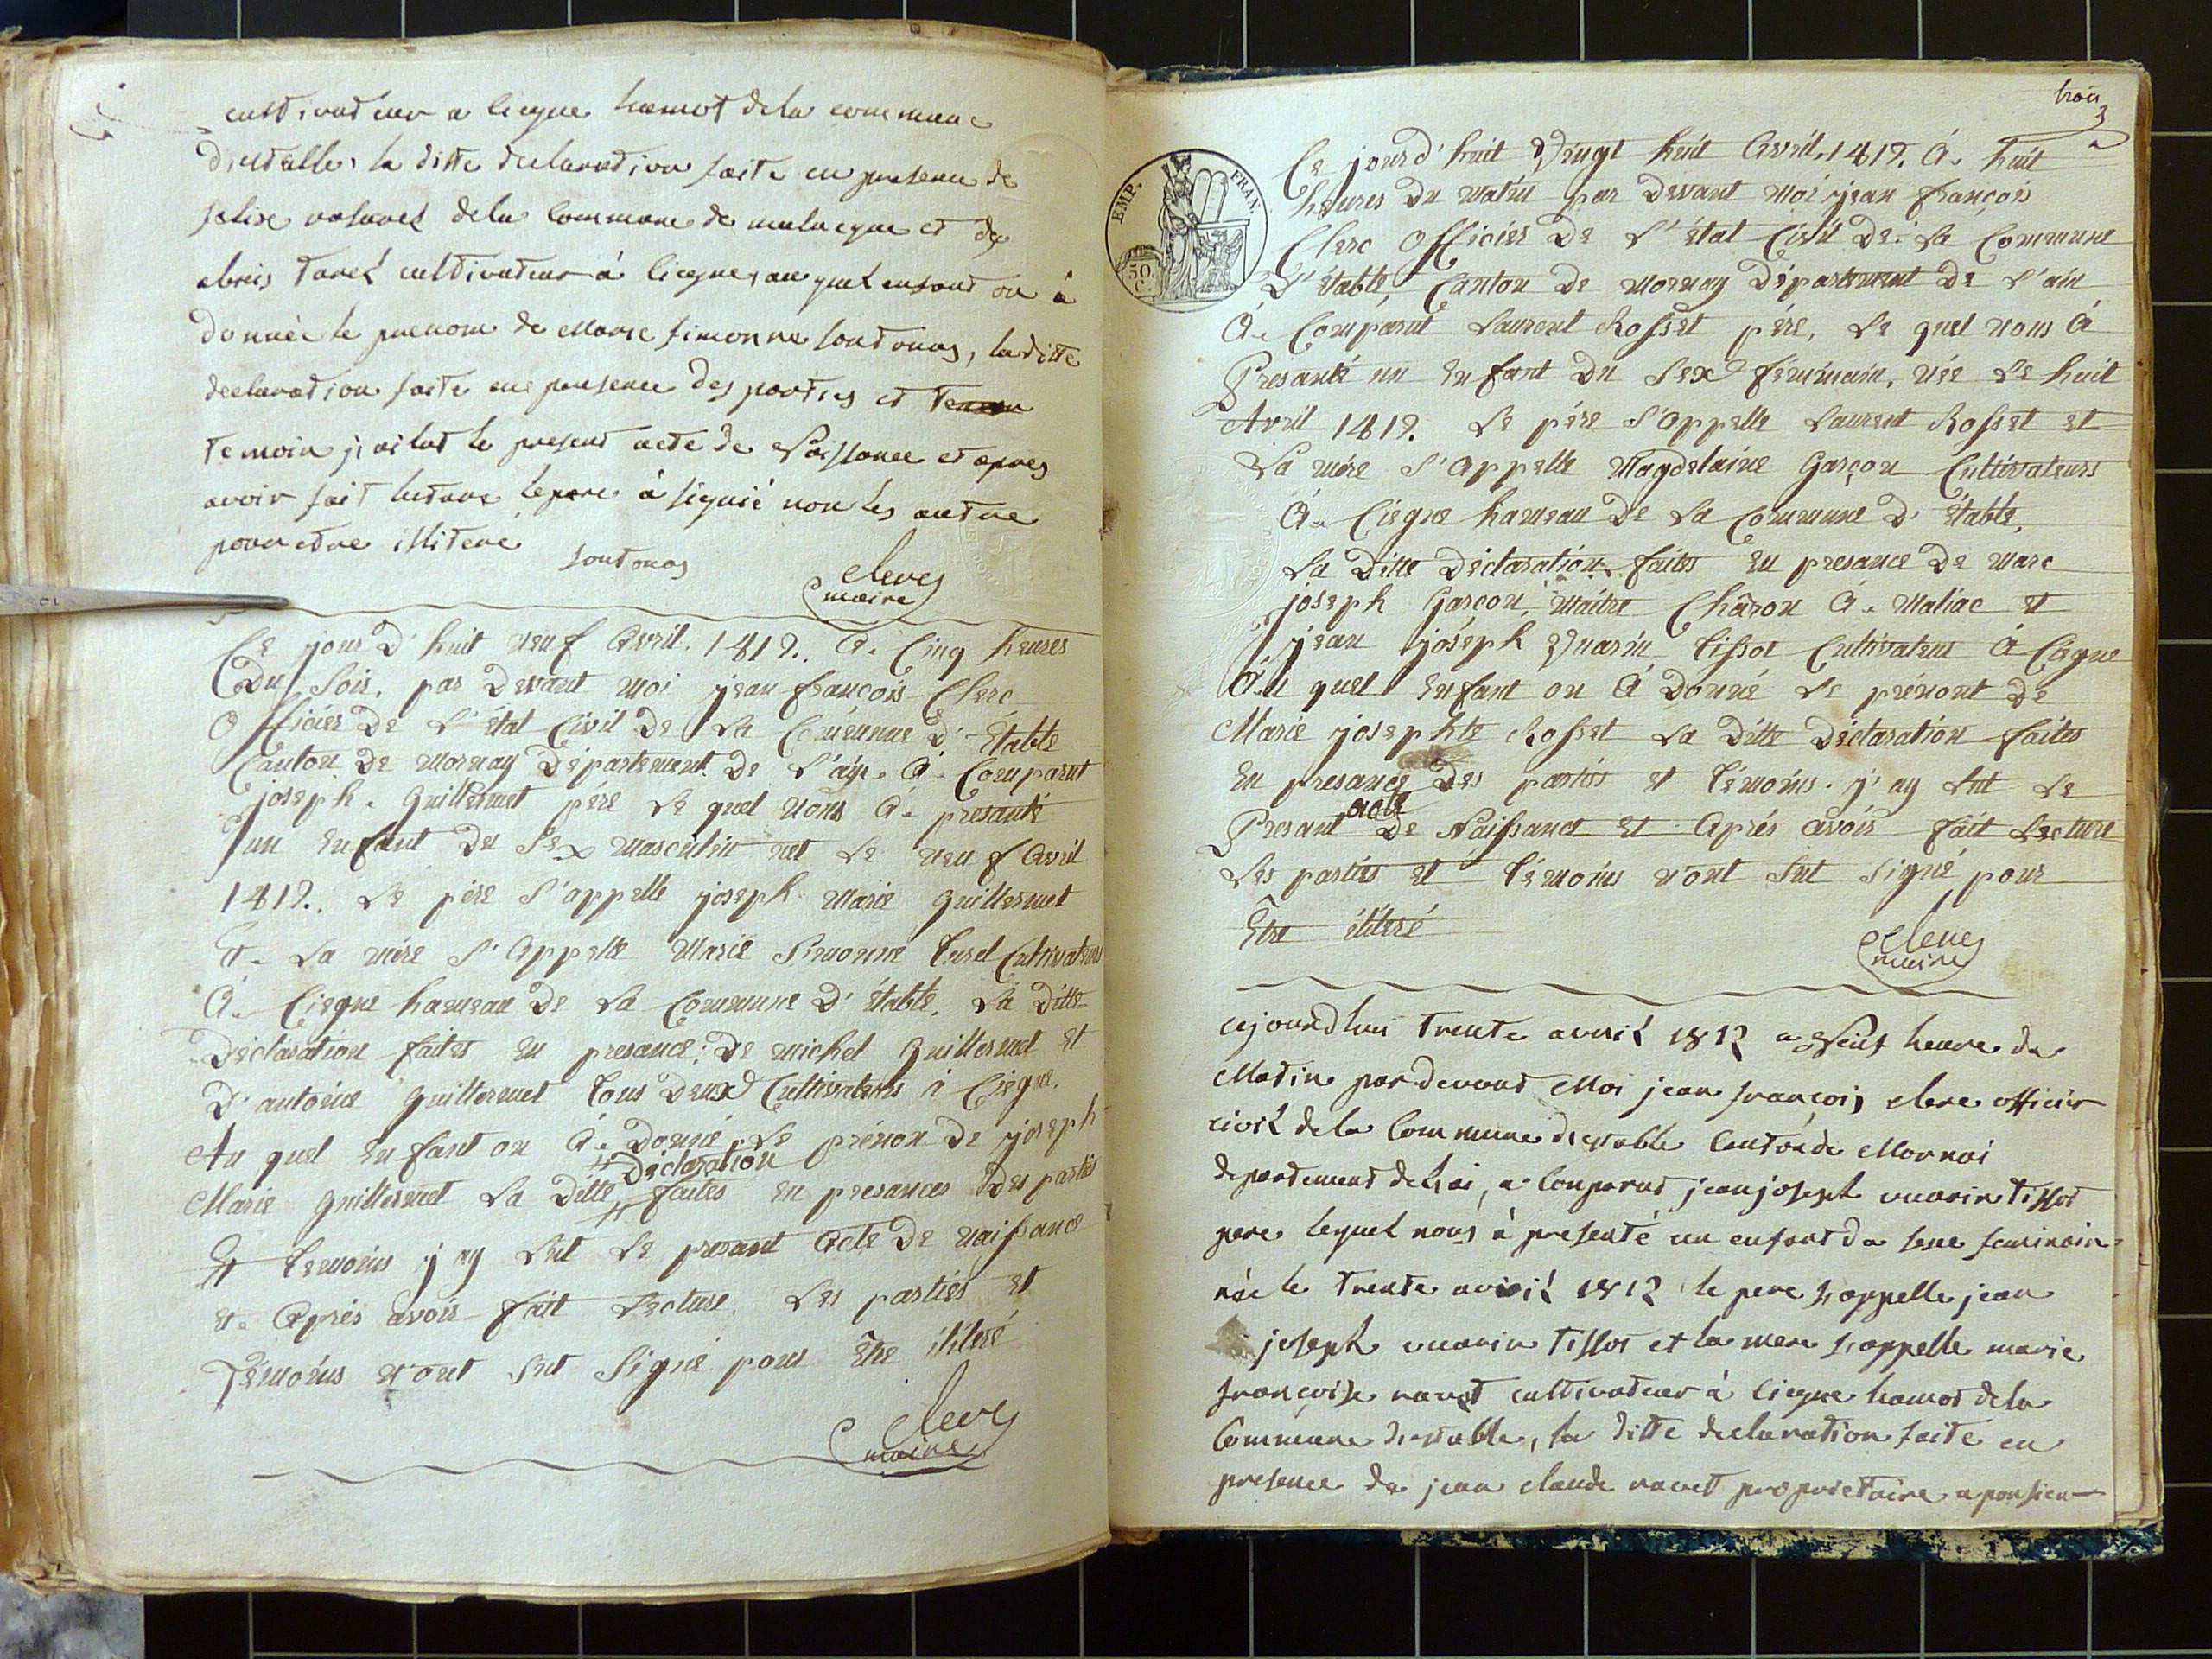 cultivateur a ciegne hamot dela commune
d'estable, la ditte declaration faite en presence de
felise ravavet dela commune de maluegne et de
alexis turel cultivateur à ciegne, au quel enfant on à
donnée le prenom de Marie simonne soudonas, la ditte
declaration faite en presence des parties et
temoin j'ai lut le present acte de Naissance et apres
avoir fait lecture le pere à signié non les autre
pour etre illitere
Soudonas
clerc
maire
Ce jour d'huit neuf Avril. 1812. A. Cinq heures
Du Soir, par Devant moi jean françois Clerc
Officier De L'état Civil De La Commune D'Étable
Canton De mornay Département De L'ain. A. Comparut
joseph. Guillermet pére Le quel nous A. presanté
un Enfant Du Sex masculin net Le neuf Avril
1812.. Le pére S'appelle joseph Marie Guillermet
Et. La mére S'Appelle Marie Simonne turel Cultivateurs
A. Ciegne hameau De La Commune D'étable. La Ditte
Déclaration faites En presance: De michel Guillermet Et
D'antoine Guillermet tous Deux Cultivateurs à Ciegne.
Au quel Enfant on A. Donné Le prénon De joseph
Déclaration
Marie Guillermet La Ditte # faites En presances Des partiés
Et témoins j'ay Lut Le presant Acte De naissance
Et. Aprés avoir fait Lecture. Les partiés Et
Témoins n'ont Sut Signé pour Être ilitéré
clerc
maire
trois
3
EMP. FRAN.
50
C.
Ce jourd'huit Vingt huit Avril. 1812. A. huit
heures Du matin par Devant moi jean françois
Clerc Officier De L'état Civil De La Commune
D'étable, Canton De mornay Département De L'ain
A. Comparut Laurent Rosset pére, Le quel nous A
Presanté un Enfant Du Sex féminain, née Le huit
Avril 1812. Le pére S'Appelle Laurent Rosset et
La mére S'Appelle Magdelaine Garçon Cultivateurs
A. Ciegne hameau De La Commune D'étable.
La Ditte Déclaration faites En presance De marc
joseph Garçon, maître Châron A. Maliac et
jean joseph Vuarin tissot Cultivateur A Ciegne
Au quel Enfant on A Donné Le prénont De
Marie josephte Rosset La Ditte Déclaration faites
En presance Des partiés et témoins. j'ay Lut Le
acte
Presant De Naissance Et Aprés avoir fait Lecture
Les partiés et témoins n'ont Sut Signé pour
Être élitéré
clerc
maire
cejourdhui trente avril 1812 a Neuf heure du
Matin par devant Moi jean françois clerc officier
civil dela Commune d'estable Canton de Mornai
departement de l'ai, a Comparut jean joseph vuarin Tissot
pere lequel nous à presenté un enfant du sexe feminain
née le trente avril 1812 le pere s'appelle jean
joseph vuarin Tissot et la mere s'appelle marie
françoise navet cultivateur à ciegne hamot dela
Commune d'estable, la ditte declaration faite en
presence de jean claude navet proprietaire a ponsieu